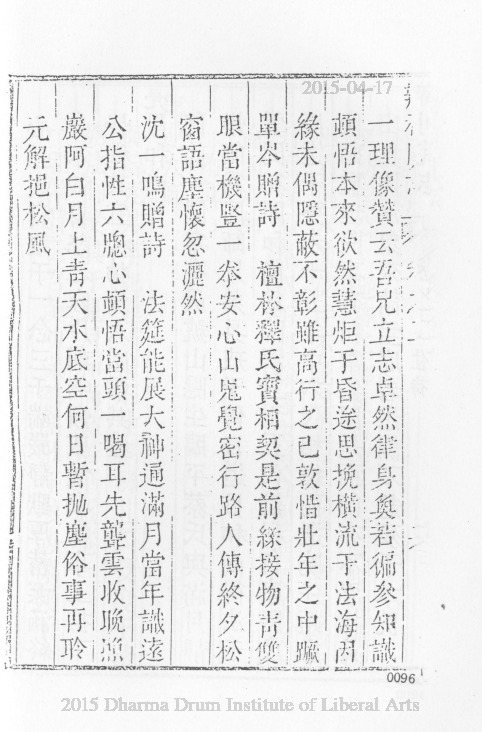 2015-04-17
一理像贊云吾兄立志卓然律身奐若徧參知識
頓悟本來欲然慧炬于昏逵思挽橫流于法海因
緣未偶隱蔽不彰雖高行之已敦惜壯年之中蹶
單岑贈詩　檀林釋氏寶相契是前緣接物青雙
眼當機豎一拳安心山鬼覺密行路人傳終夕松
窗語塵懷忽灑然
沈一鳴贈詩　法筵能展大神通滿月當年識遠
公指性六牕心頓悟當頭一喝耳先聾雲收晚漁
巖阿白月上青天水底空何日暫拋塵俗事再聆
元解挹松風
0096
2015 Dharma Drum Institute of Liberal Arts